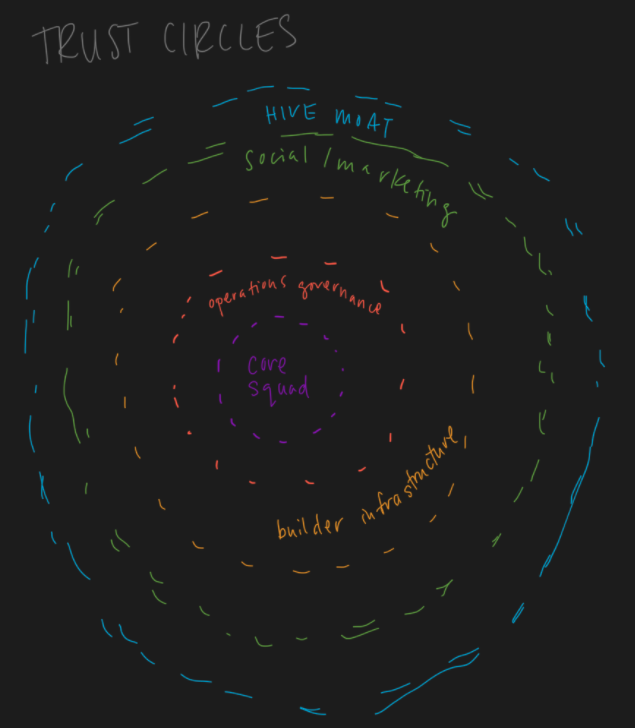 TRUST CIRCLES
HIVE MOAT
social / marketing
operations governance
core
squad
builder infrastructure